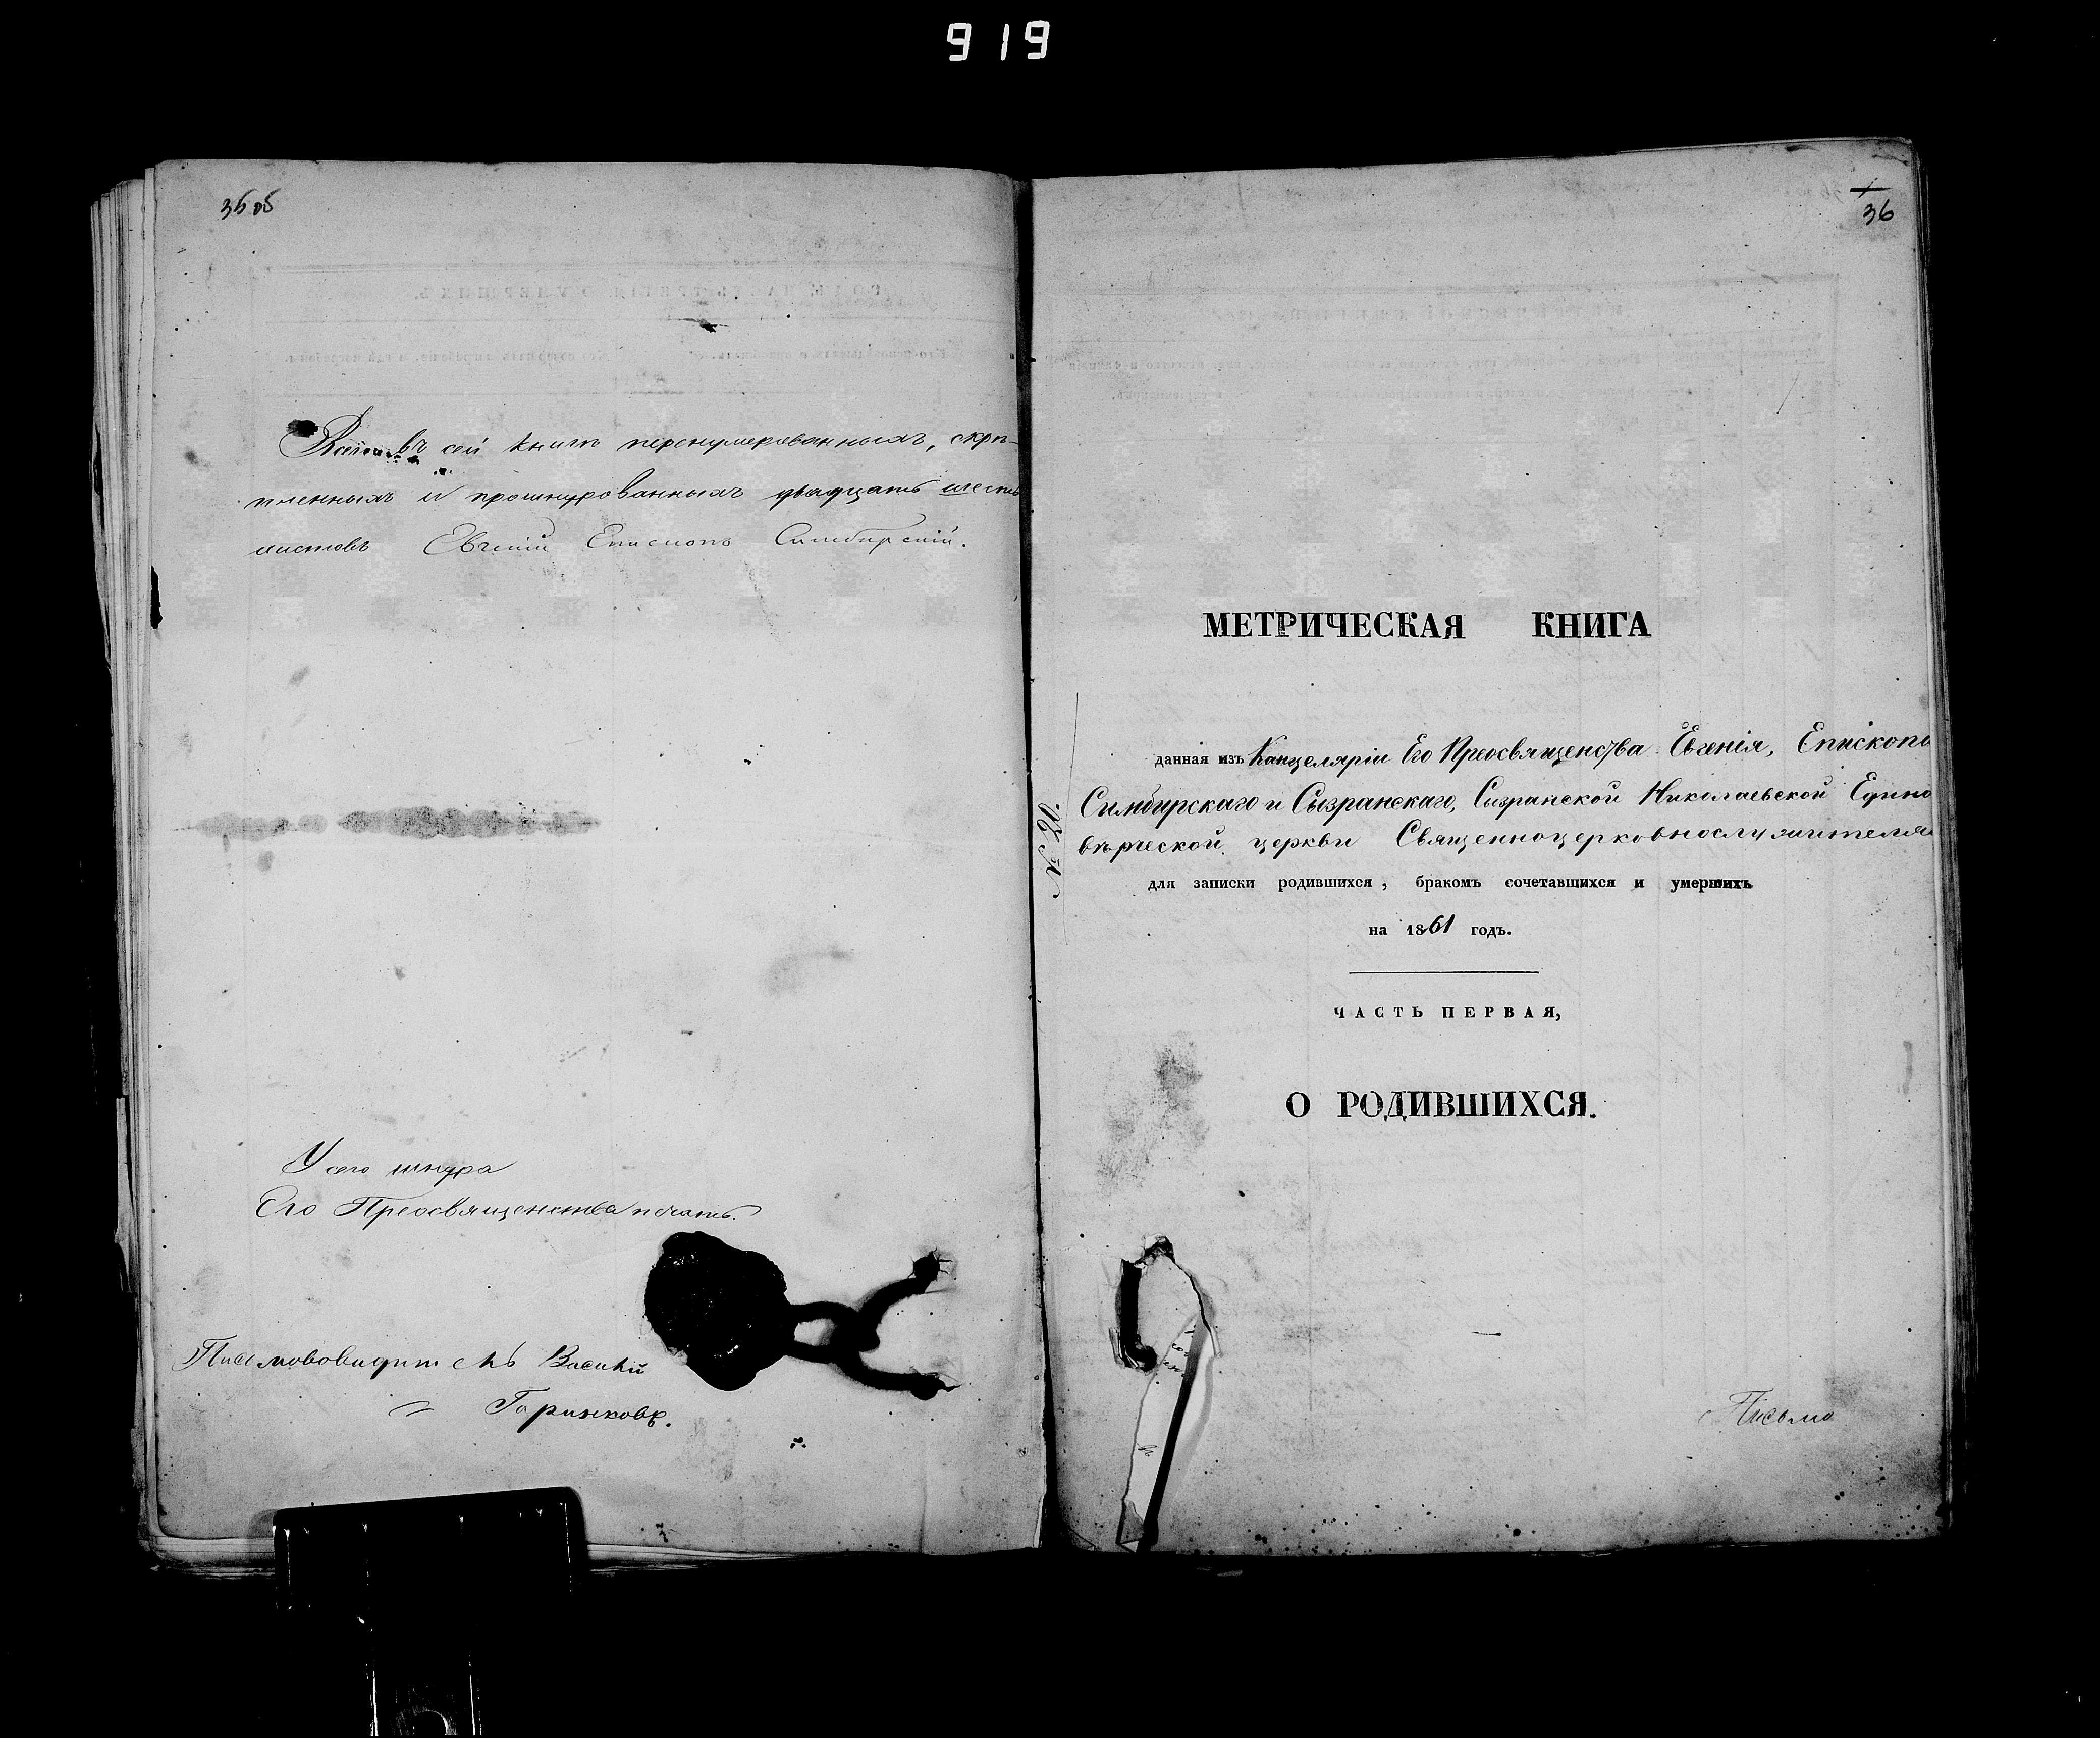 919
35 об
Всего въ сей книгѣ перенумерованныхъ, скрѣ-
пленныхъ и прошнурованныхъ двадцать шесть
листовъ Евгеній Епископъ Симбирскій.
У сего шнура
Его Преосвященства печать.
Письмоводитель Василій
36
МЕТРИЧЕСКАЯ КНИГА
данная изъ Канцеляріи Его Преосвященства Евгенія, Епископа
Симбирскаго и Сызранскаго, Сызранской Николаевской Едино
вѣрческой церкви Священноцерковнослужителя
для записки родившихся, бракомъ сочетавшихся и умершихъ
на 1861 годъ.
ЧАСТЬ ПЕРВАЯ,
О РОДИВШИХСЯ.
Письмо